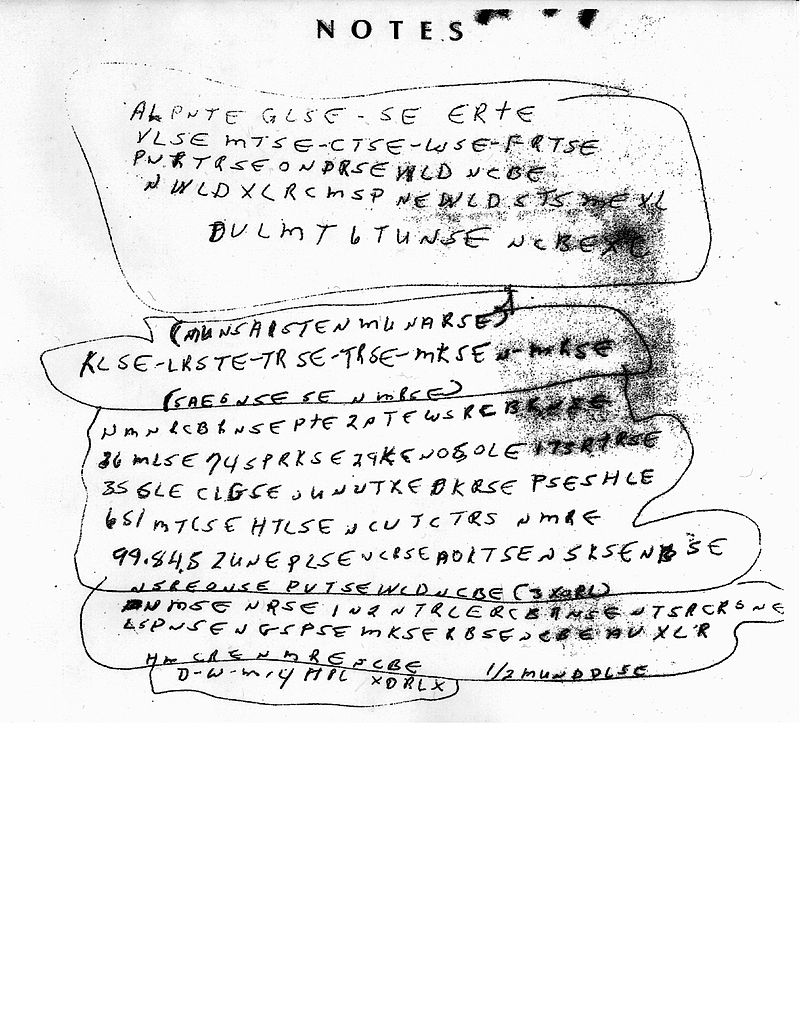 NOTES
ALPNTE GLSE - SE ERTE
VLSE MTSE-CTSE-WSE-FRTSE
PNRTRSE ONDRSE WLD NCBE
N WLD XLRCMSP NEWLD STS ME XL
DULMT 6 TUNSE NCBE XC
(MUNSARSTEN MU NARSE)
KLSE-LRSTE-TRSE-TRSE-MKSEN-MRSE
(SAEGNSE SE N MRSE)
NMNRCBRNSE PTE 2PTE WSRC BRNSE
36 MLSE 74 SPRKSE 29KENOSOLE 173RTRSE
35 GLE CLGSE UNUTXE DKRSE PSESHLE
651 MTCSE HTLSE NCUTCTRS NMRE
99.84.5 2UNE PLSE NCRSE AOLTSE NSKSE NBSE
NSREONSE PUTSE WLD NCBE (3 XORL)
NRSE IN 2 NTRLE RCBRNSE NTSRCRSNE
LSPNSE NGSPSE MKSE RBSE NCBE AU XLR
HM CRE NMRE NCBE 1/2 MUNDDLSE
D-W-M-4 HPL XDRLX